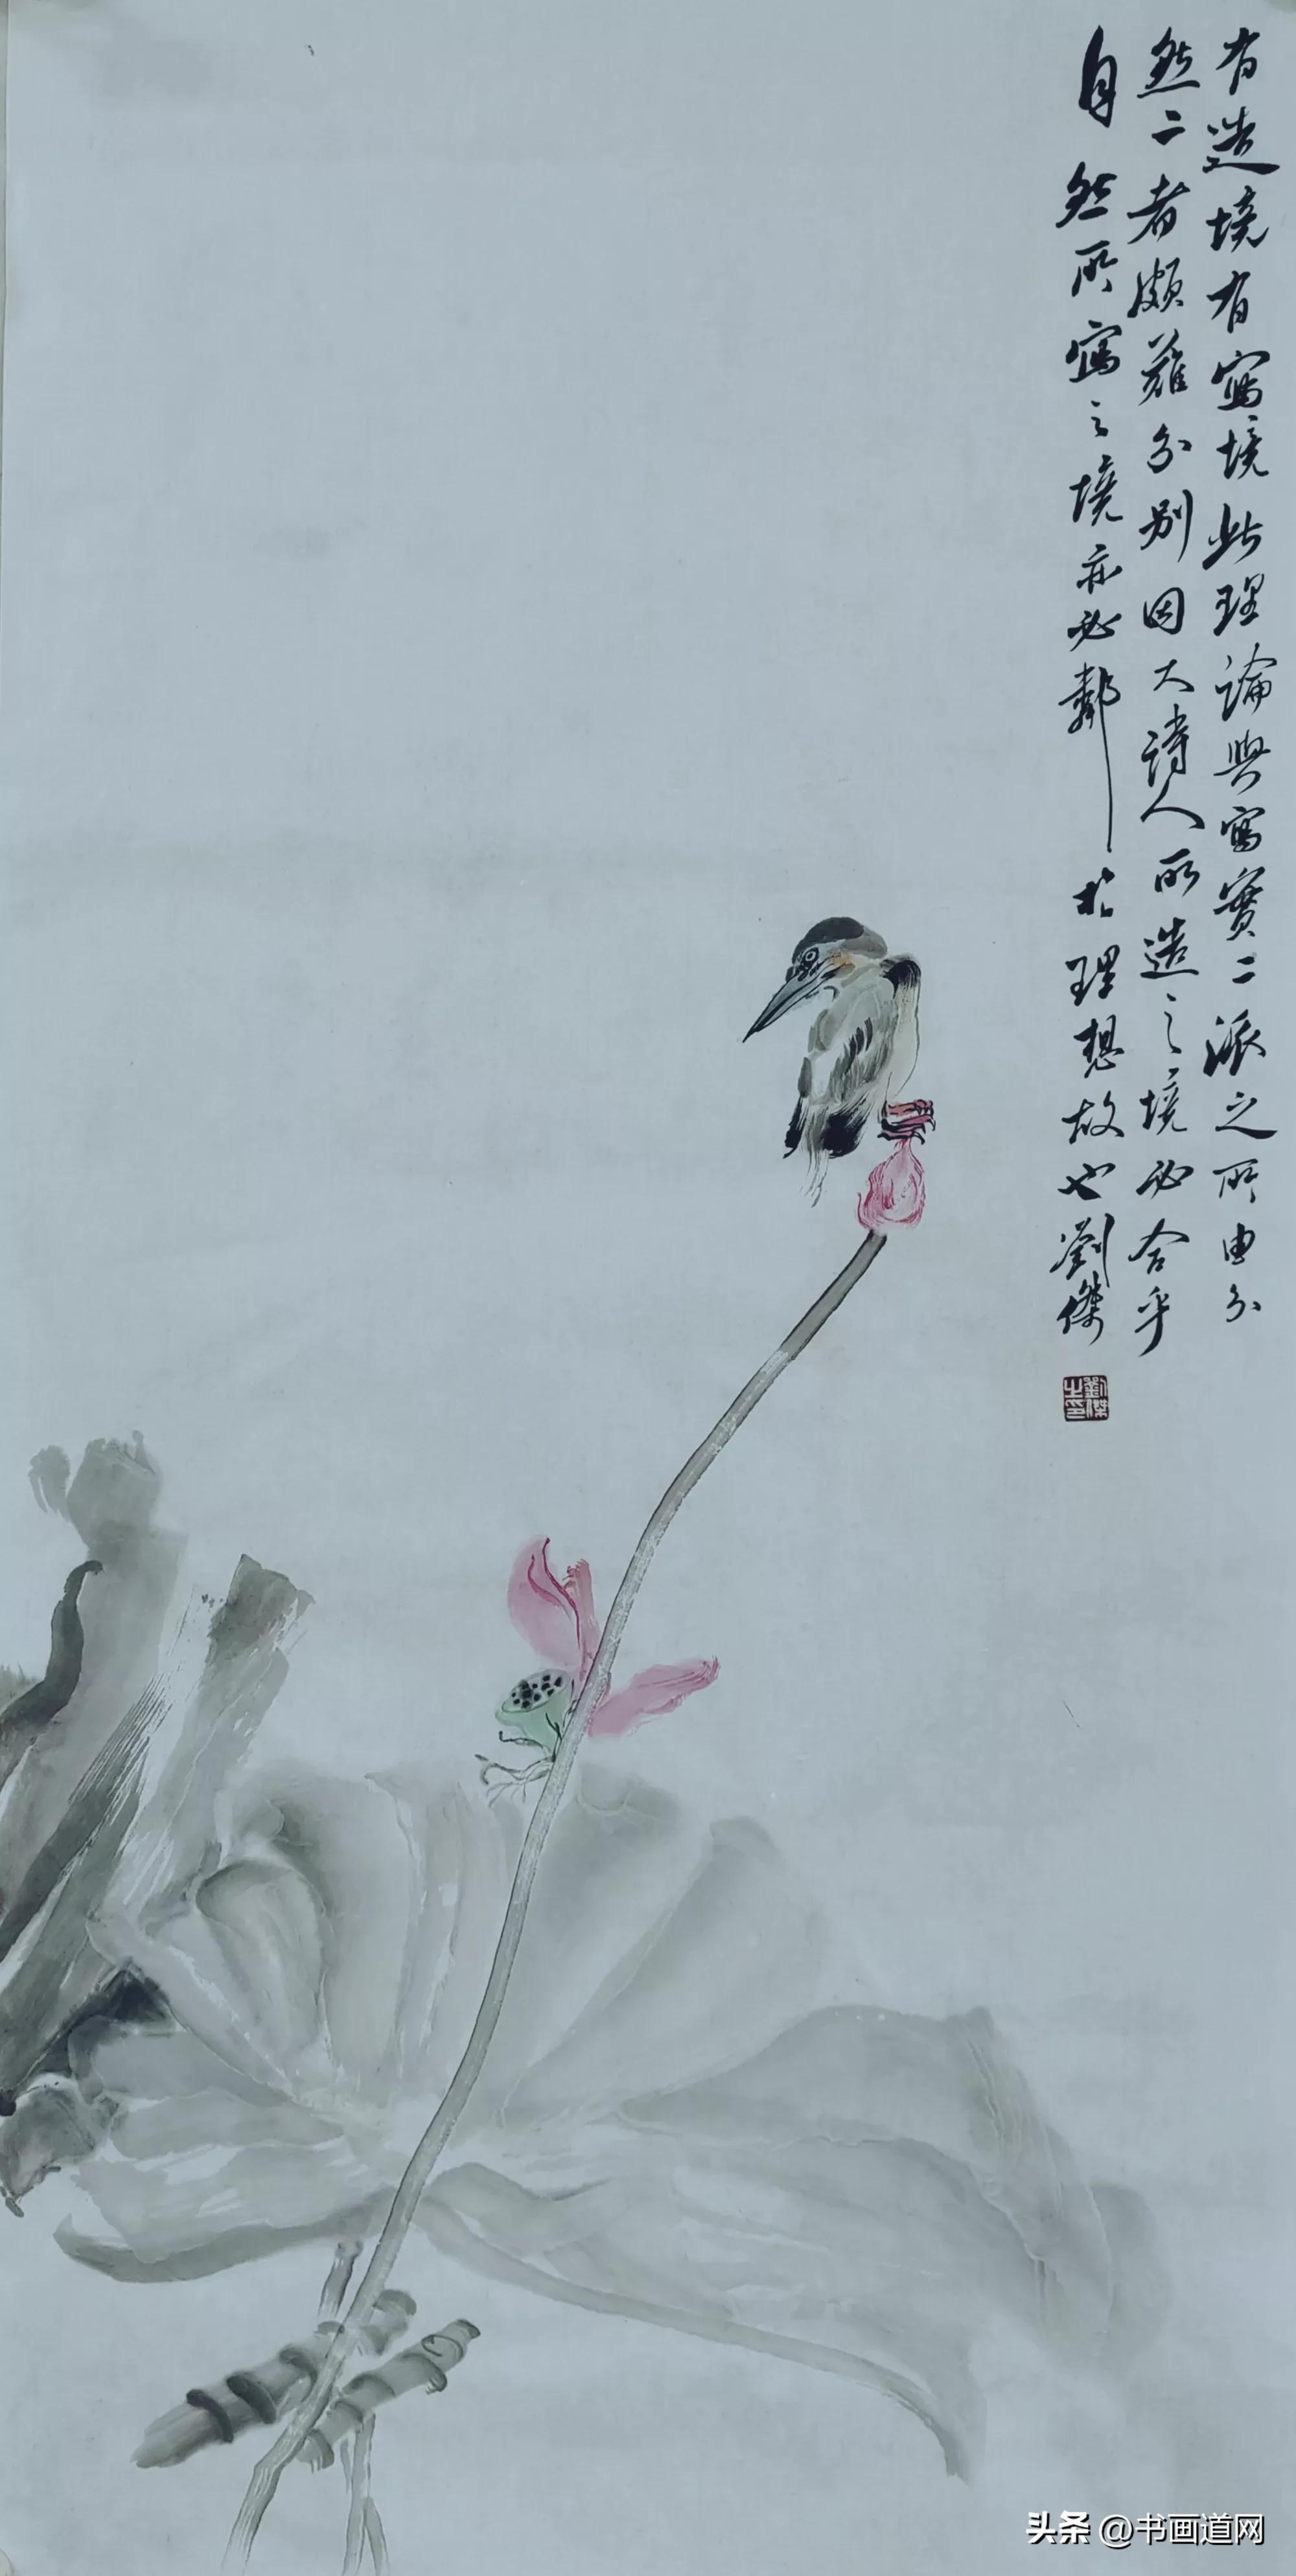 有造境有寫境此理論與寫實二派之所由分
然二者頗難分别因大詩人所造之境必合乎
自然所寫之境亦必鄰於理想故也劉傑
劉傑之印
头条 @书画道网